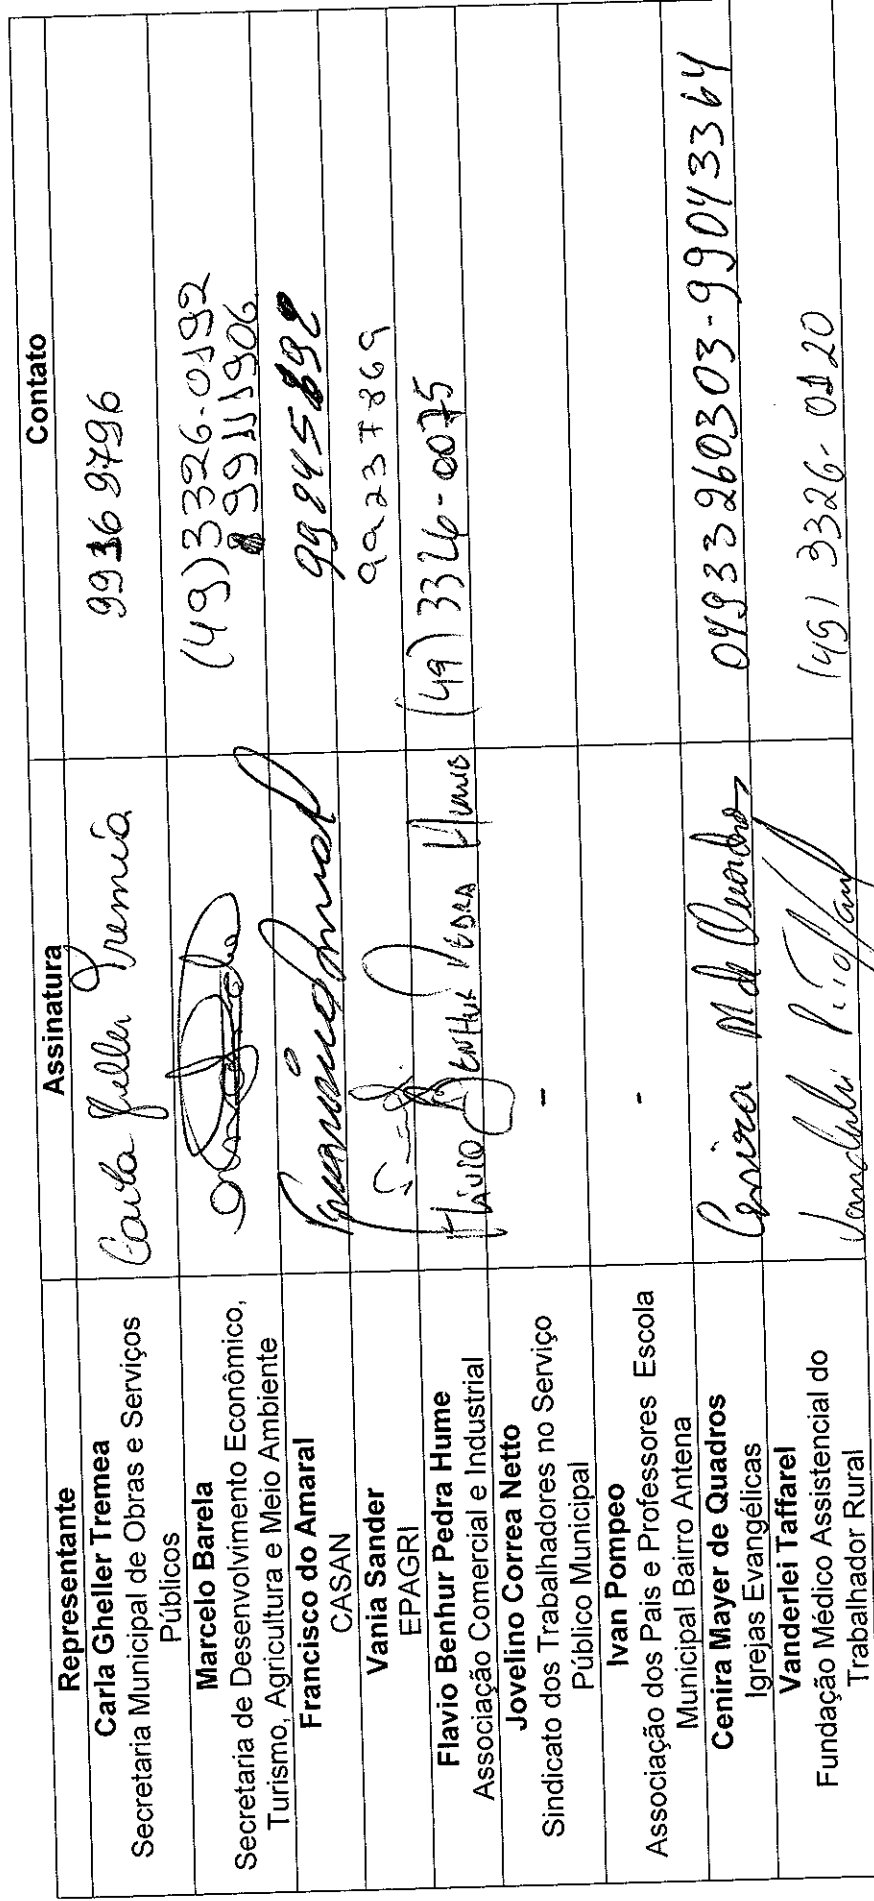 Representante
Assinatura
Contato
Carla Gheller Tremea
Secretaria Municipal de Obras e Serviços
Públicos
Carla Gheller Tremea
99369796
Marcelo Barela
Secretaria de Desenvolvimento Econômico,
Turismo, Agricultura e Meio Ambiente
(49)3326-0192
99111906
Francisco do Amaral
CASAN
Francisco Amaral
99845892
Vania Sander
EPAGRI
99237869
Flavio Benhur Pedra Hume
Associação Comercial e Industrial
Flávio Benhur Pedra Hume
(49)3326-0075
Jovelino Correa Netto
Sindicato dos Trabalhadores no Serviço
Público Municipal
-
Ivan Pompeo
Associação dos Pais e Professores Escola
Municipal Bairro Antena
-
Cenira Mayer de Quadros
Igrejas Evangélicas
Cenira M de Quadros
04933260303-99043364
Vanderlei Taffarel
Fundação Médico Assistencial do
Trabalhador Rural
Vanderlei
(49) 3326-0120